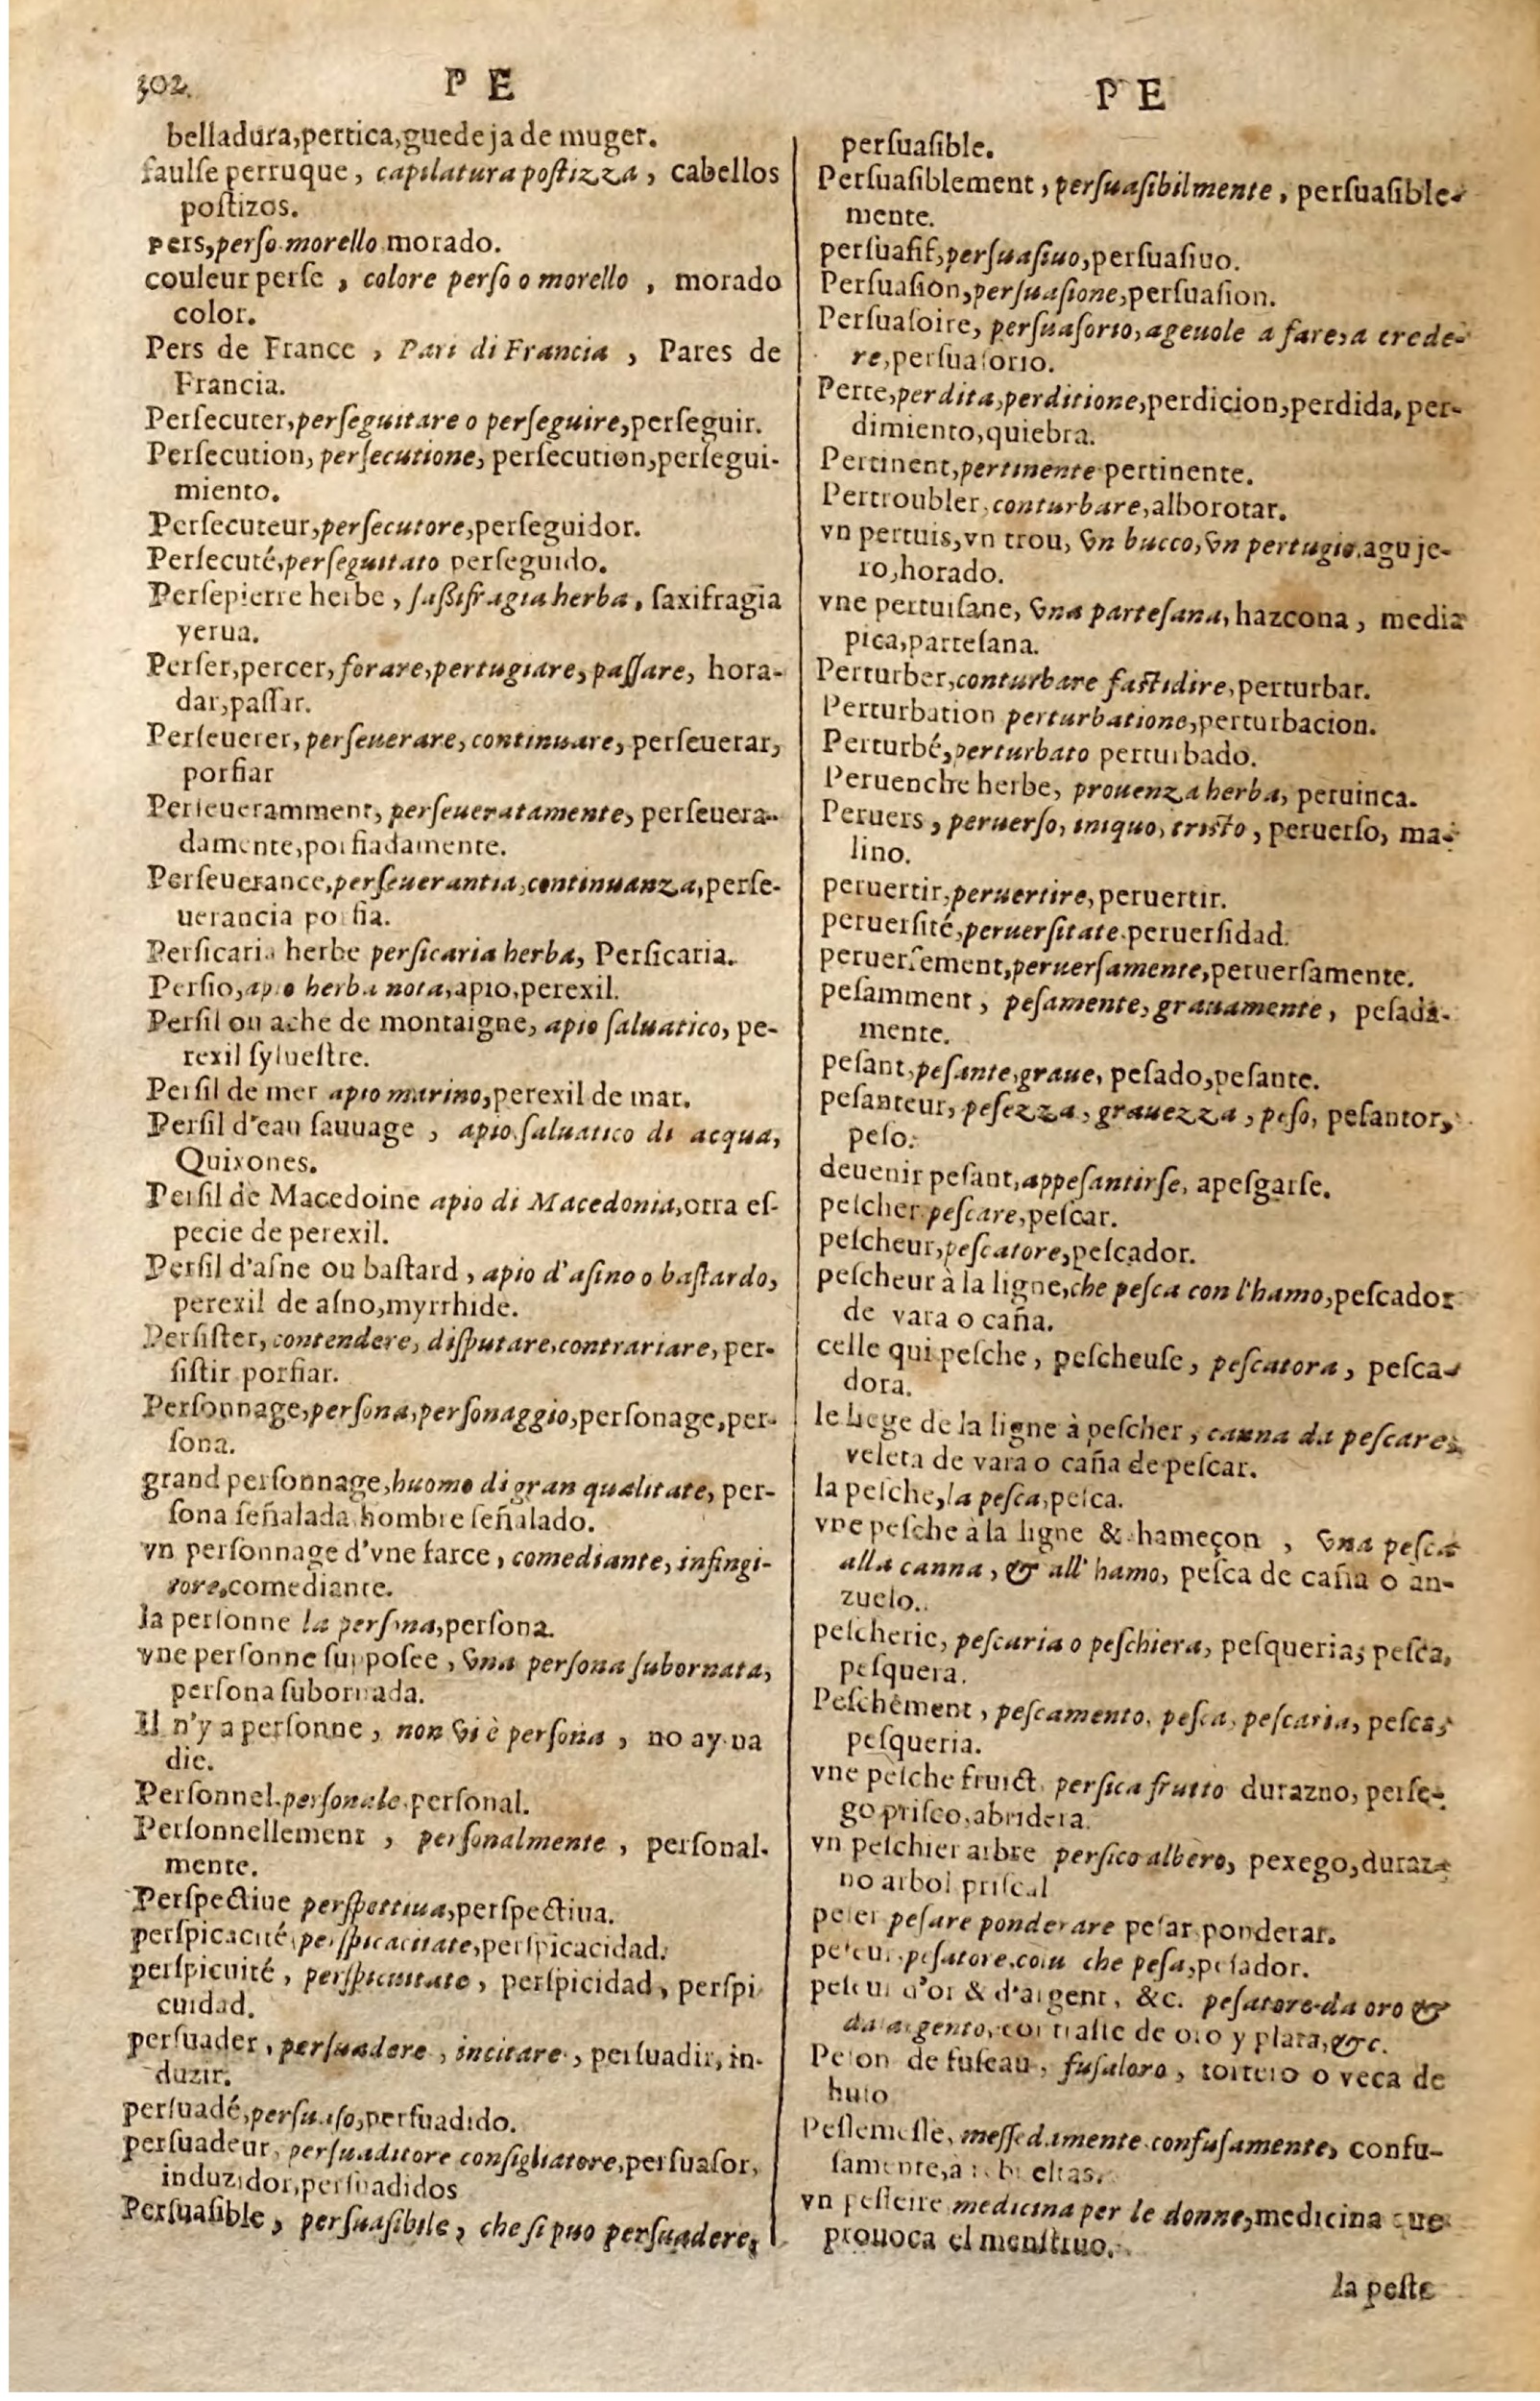 302.
P E
belladura,pertica,guedeja de muger.
faulſe perruque, capilatura poſtizza, cabellos
poſtizos.
pers,perſo morello morado.
couleur perſe, colore perſo o morello, morado
color.
Pers de France, Pari di Francia, Pares de
Francia.
Perſecuter,perſeguitare o perſeguire,perſeguir.
Perſecution, perſecutione, perſecution,perſegui-
miento.
Perſecuteur,perſecutore,perſeguidor.
Perſecuté,perſeguitato perſeguido.
Perſepierre herbe, ſaßifragia herba, ſaxifragia
yerua.
Perſer,percer, forare,pertugiare, paſſare, hora-
dar,paſſar.
Perſeuerer, perſeuerare, continuare, perſeuerar,
porfiar
Perſeueramment, perſeueratamente, perſeuera-
damente,porfiadamente.
Perſeuerance,perſeuerantia,continuanza,perſe-
uerancia porfia.
Perſicaria herbe perſicaria herba, Perſicaria.
Perſio,apio herba nota,apio,perexil.
Perſil ou ache de montaigne, apio ſaluatico, pe-
rexil ſylueſtre.
Perſil de mer apio marino,perexil de mar.
Perſil d'eau ſauuage, apio ſaluatico di acqua,
Quixones.
Perſil de Macedoine apio di Macedonia,otra eſ-
pecie de perexil.
Perſil d'aſne ou baſtard, apio d'aſino o baſtardo,
perexil de aſno,myrrhide.
Perſiſter, contendere, diſputare,contrariare, per-
ſiſtir porfiar.
Perſonnage,perſona,perſonaggio,perſonage,per-
ſona.
grand perſonnage,huomo di gran qualitate, per-
ſona ſeñalada hombre ſeñalado.
vn perſonnage d'vne farce, comediante, inſingi-
tore,comediante.
la perſonne la perſona,perſona.
vne perſonne ſuppoſee, vna perſona ſubornata,
perſona ſubornada.
Il n'y a perſonne, non vi è perſona, no ay na
die.
Perſonnel.perſonale.perſonal.
Perſonnellement, perſonalmente, perſonal-
mente.
Perſpectiue perſpettiua,perſpectiua.
perſpicacité,perſpicacitate,perſpicacidad.
perſpicuité, perſpicuitate, perſpicidad, perſpi
cuidad.
perſuader, perſuadere, incitare, perſuadir, in-
duzir.
perſuadé,perſuaſo,perſuadido.
perſuadeur, perſuaditore conſigliatore,perſuaſor,
induzidor,perſuadidos
Perſuaſible, perſuaſibile, che ſi puo perſuadere,
P E
perſuaſible.
Perſuaſiblement, perſuaſibilmente, perſuaſible-
mente.
perſuaſif,perſuaſiuo,perſuaſiuo.
Perſuaſion,perſuaſione,perſuaſion.
Perſuaſoire, perſuaſorio,ageuole a fare,a crede-
re,perſuaſorio.
Perte,perdita,perditione,perdicion,perdida,per-
dimiento,quiebra.
Pertinent,pertinente pertinente.
Pertroubler,conturbare,alborotar.
vn pertuis,vn trou, vn bucco,vn pertugio,aguje-
ro,horado.
vne pertuiſane, vna parteſana, hazcona, media
pica,parteſana.
Perturber,conturbare faſtidire,perturbar.
Perturbation perturbatione,perturbacion.
Perturbé,perturbato perturbado.
Peruenche herbe, prouenza herba, peruinca.
Peruers, peruerſo, iniquo, triſto, peruerſo, ma-
lino.
peruertir,peruertire,peruertir.
peruerſité,peruerſitate.peruerſidad.
peruerſement,peruerſamente,peruerſamente.
peſamment, peſamente,grauamente, peſada-
mente.
peſant,peſante,graue, peſado,peſante.
peſanteur, peſezza, grauezza, peſo, peſantor,
peſo.
deuenir peſant,appeſantirſe, apeſgarſe.
peſcher peſcare,peſcar.
peſcheur,peſcatore,peſcador.
peſcheur à la ligne,che peſca con l'hamo,peſcador
de vara o caña.
celle qui peſche, peſcheuſe, peſcatora, peſca-
dora.
le liege de la ligne à peſcher, canna da peſcare,
veleta de vara o caña de peſcar.
la peſche,la peſca,peſca.
vne peſche à la ligne & hameçon, vna peſca
alla canna, & all' hamo, peſca de caña o an-
zuelo.
peſcherie, peſcaria o peſchiera, peſqueria; peſca,
peſquera.
Peſchement, peſcamento, peſca, peſcaria, peſca,
peſqueria.
vne peſche fruict, perſica frutto durazno, perſe-
go priſco,abridera.
vn peſchier arbre perſico albero, pexego,duraz-
no arbol priſcal
peſer peſare ponderare peſar ponderar.
peſeur,peſatore.colui che peſa,peſador.
peſeur d'or & d'argent, &c. peſatore da oro &
da argento,contraſte de oro y plata,&c.
Peſon de fuſeau, fuſaloro, tortero o veca de
huſo
Peſlemeſle, meſſedamente confuſamente, confu-
ſamente,a rebueltas.
vn peſſeire medicina per le donne,medicina que
prouoca el menſtruo.
la peſte